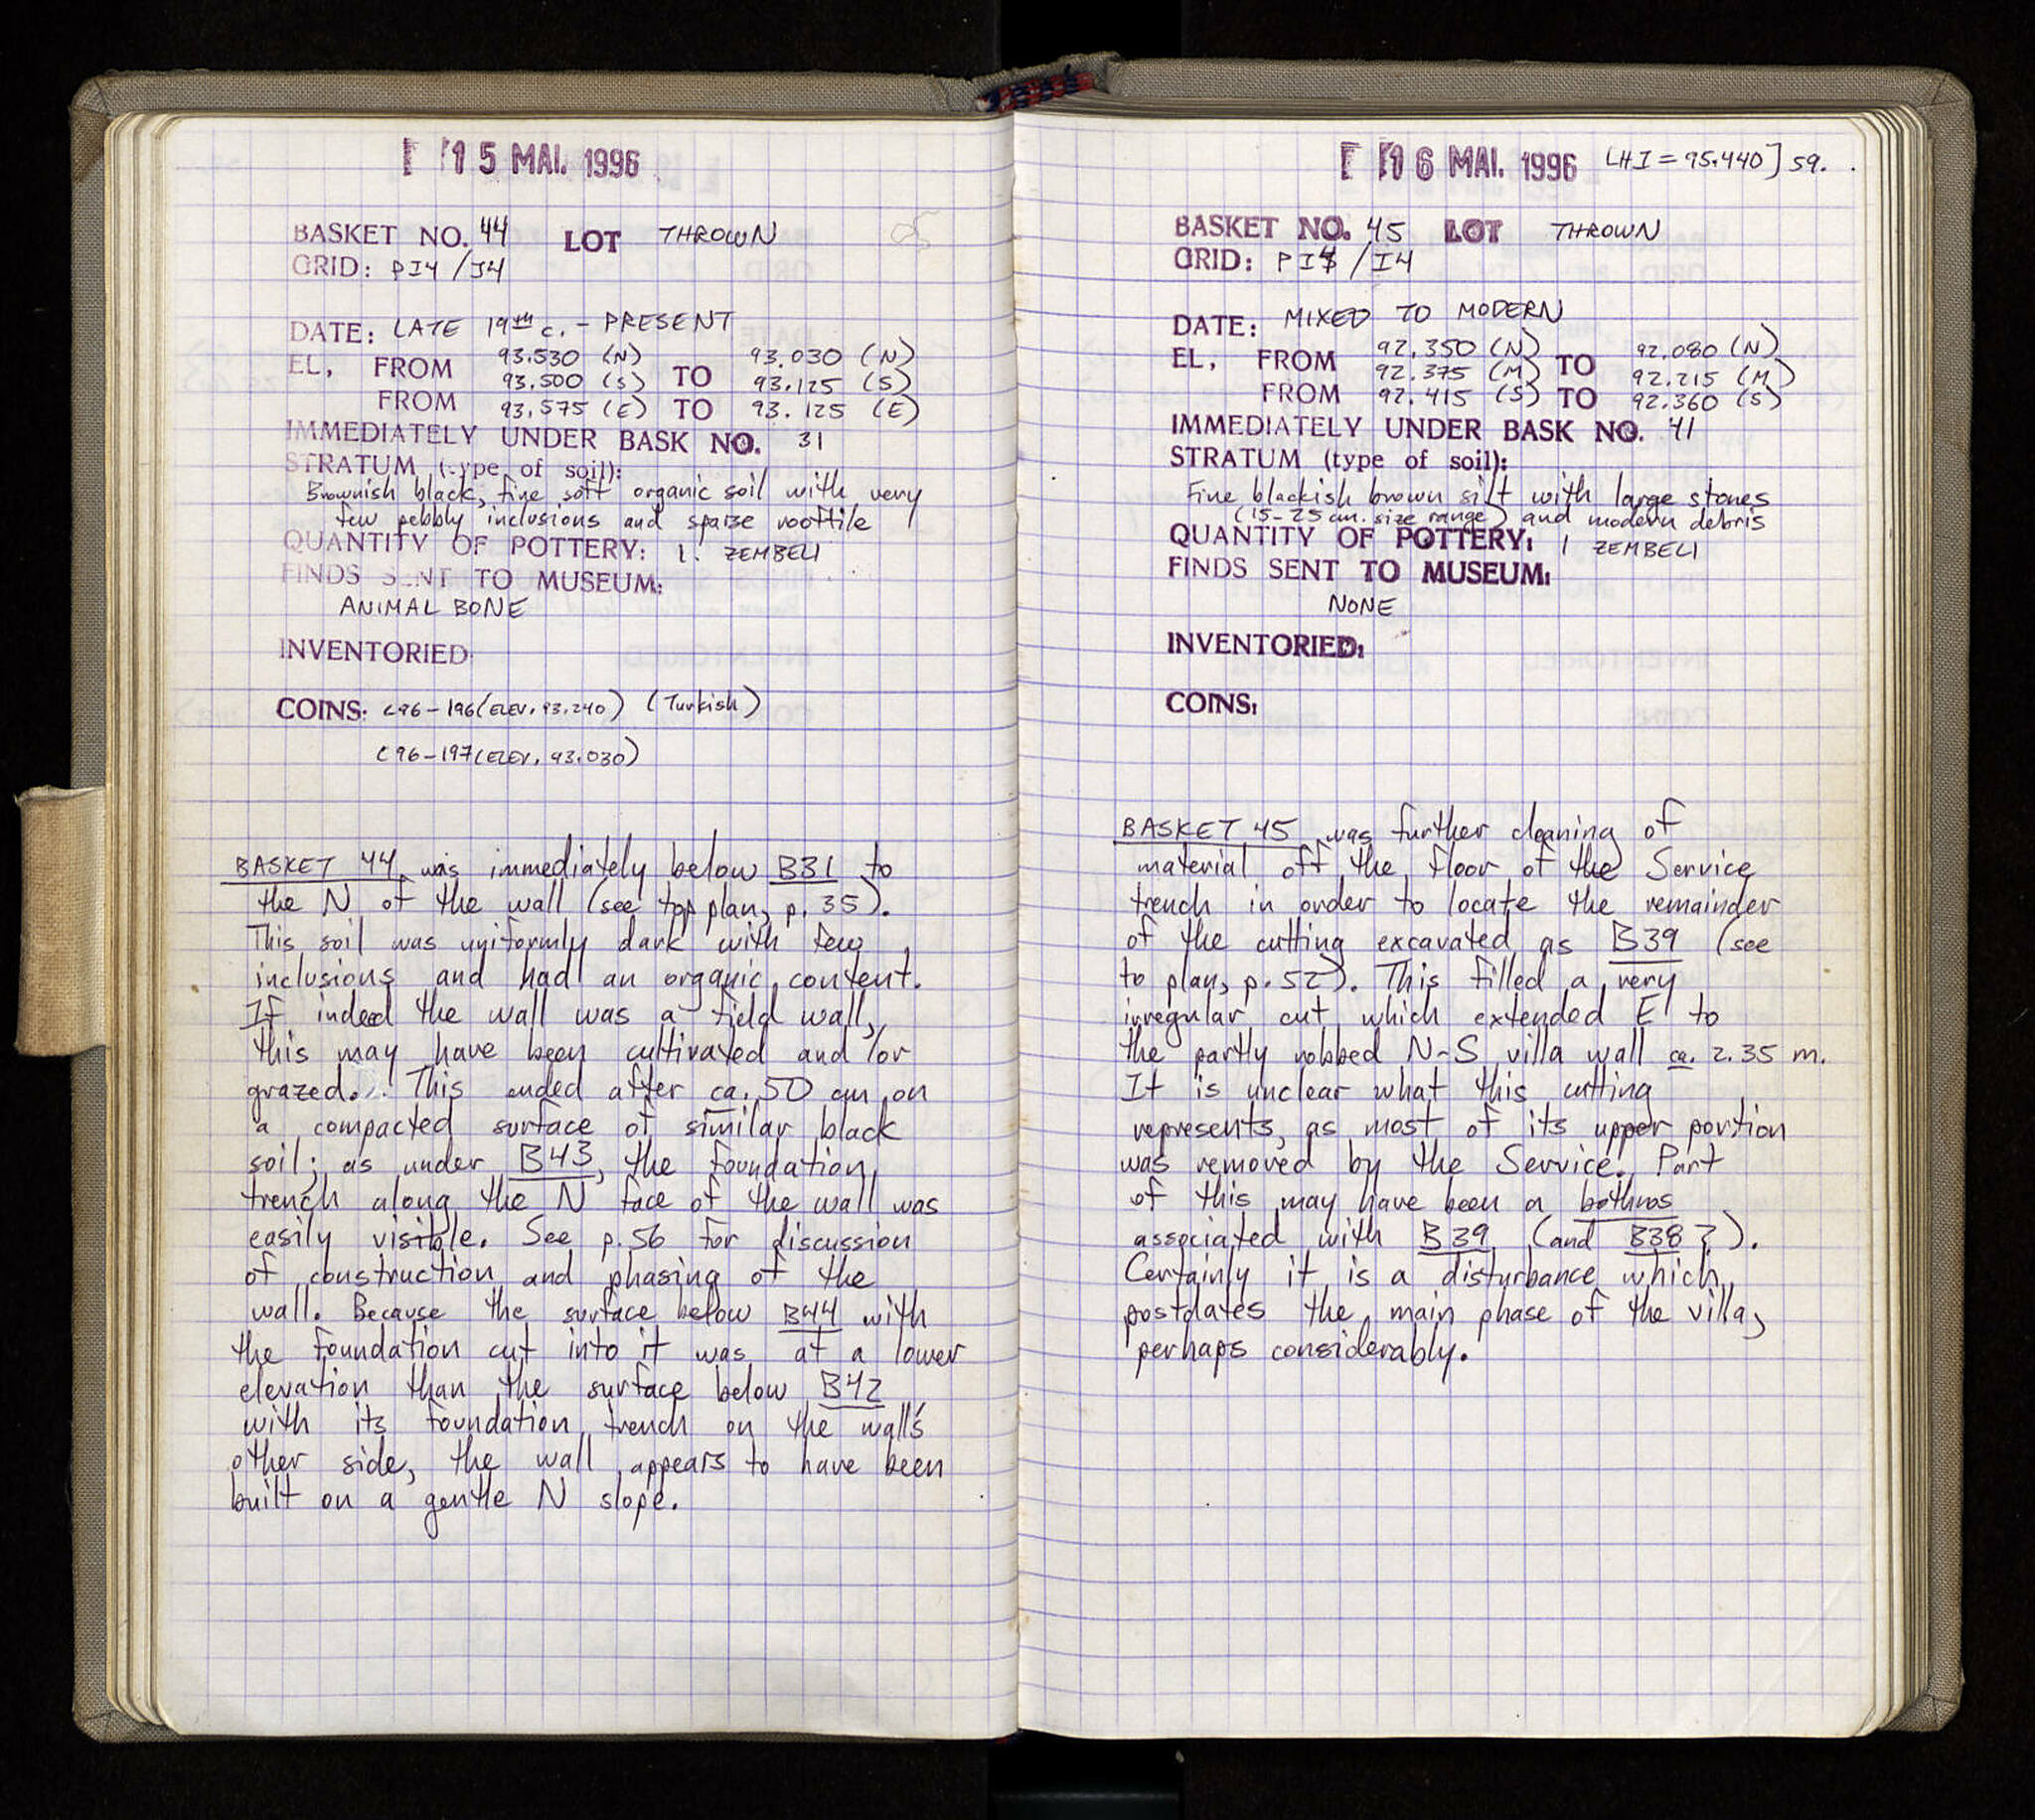 15 MAI. 1996
BASKET NO. 44 LOT THROWN
GRID: PI4/J4
DATE: LATE 19th c. - PRESENT
93.530 (N) 93.030 (N)
EL, FROM 93.500 (S) TO 93.125 (S)
FROM 93.575 (E) TO 93.125 (E)
IMMEDIATELY UNDER BASK NO. 31
STRATUM (type of soil):
Brownish black, fine soft organic soil with very
few pebbly inclusions and sparse rooftile
QUANTITY OF POTTERY: 1. ZEMBELI
FINDS SENT TO MUSEUM:
ANIMAL BONE
INVENTORIED
COINS: C96-196 (ELEV. 93.240) (Turkish)
C96-197 (ELEV. 93.030)
BASKET 44 was immediately below B31 to
the N of the wall (see top plan, p. 35).
This soil was uniformly dark with few
inclusions and had an organic content.
If indeed the wall was a field wall,
this may have been cultivated and/or
grazed. This ended after ca. 50 cm on
a compacted surface of similar black
soil; as under B43, the foundation
trench along the N face of the wall was
easily visible. See p. 56 for discussion
of construction and phasing of the
wall. Because the surface below B44 with
the foundation cut into it was at a lower
elevation than the surface below B42
with its foundation trench on the wall's
other side, the wall appears to have been
built on a gentle N slope.
16 MAI. 1996 [HI = 95.440] 59.
BASKET NO. 45 LOT THROWN
GRID: PI4/I4
DATE: MIXED TO MODERN
92.350 (N) 92.080 (N)
EL, FROM 92.375 (M) TO 92.215 (M)
FROM 92.415 (S) TO 92.360 (S)
IMMEDIATELY UNDER BASK NO. 41
STRATUM (type of soil):
Fine blackish brown silt with large stones
(15-25 cm. size range) and modern debris
QUANTITY OF POTTERY: 1 ZEMBELI
FINDS SENT TO MUSEUM:
NONE
INVENTORIED:
COINS:
BASKET 45 was further cleaning of
material off the floor of the Service
trench in order to locate the remainder
of the cutting excavated as B39 (see
to plan, p. 52). This filled a very
irregular cut which extended E to
the partly robbed N-S villa wall ca. 2.35 m.
It is unclear what this cutting
represents, as most of its upper portion
was removed by the Service. Part
of this may have been a bothros
associated with B39 (and B38?).
Certainly it is a disturbance which
postdates the main phase of the villa,
perhaps considerably.